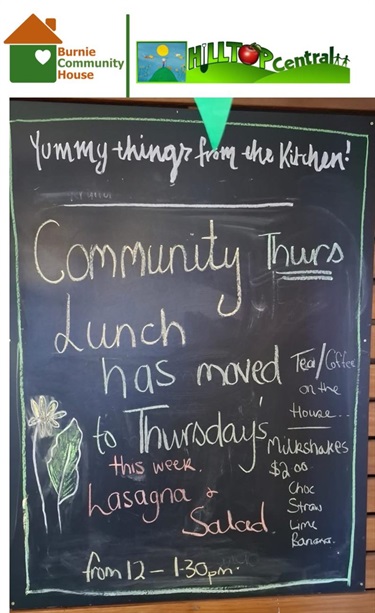 Burnie
Community
House
HiLLTOP Central
Yummy things from the Kitchen!
Community Thurs
Lunch
has moved
to Thursday's
this week.
Lasagna &
Salad
from 12 - 1.30pm.
Tea/Coffee
on the
House...
Milkshakes
$2.00
Choc
Straw
Lime
Banana.